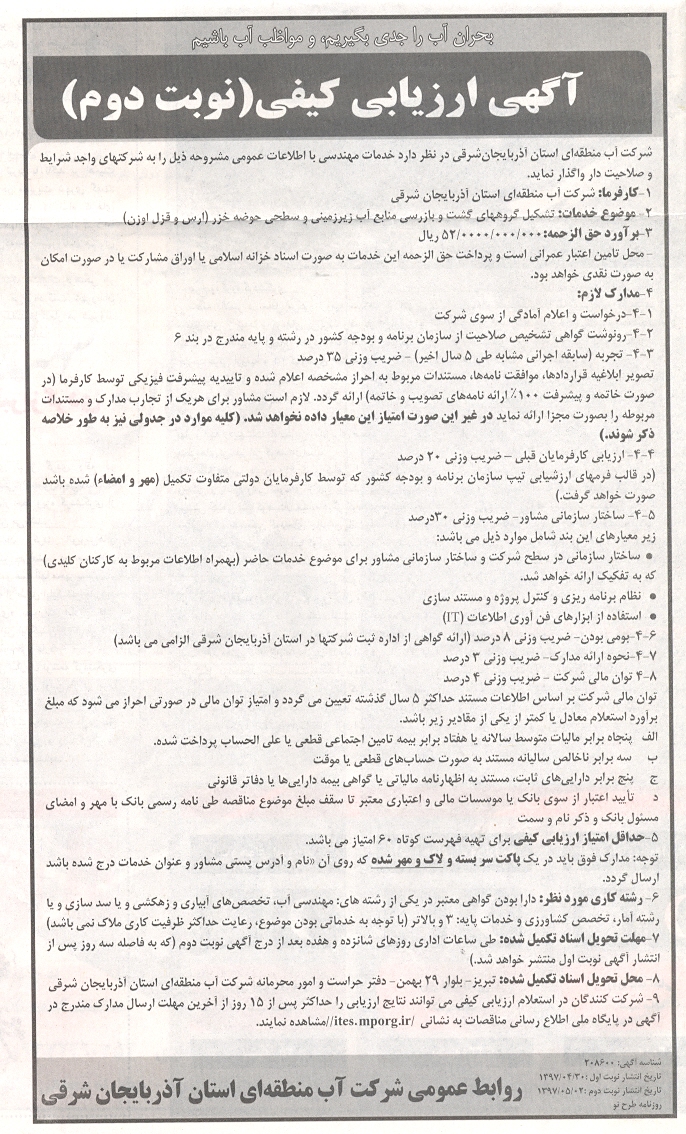 بحران آب را جدی بگیریم، و مواظب آب باشیم
آگهی ارزیابی کیفی(نوبت دوم)
شرکت آب منطقه‌ای استان آذربایجان‌شرقی در نظر دارد خدمات مهندسی با اطلاعات عمومی مشروحه ذیل را به شرکتهای واجد شرایط
و صلاحیت دار واگذار نماید.
۱-کارفرما: شرکت آب منطقه‌ای استان آذربایجان شرقی
۲- موضوع خدمات: تشکیل گروههای گشت و بازرسی منابع آب زیرزمینی و سطحی حوضه خزر (ارس و قزل اوزن)
۳-برآورد حق الزحمه: ۵۲/۰۰۰۰/۰۰۰/۰۰۰ ریال
- محل تامین اعتبار عمرانی است و پرداخت حق الزحمه این خدمات به صورت اسناد خزانه اسلامی یا اوراق مشارکت یا در صورت امکان
به صورت نقدی خواهد بود.
۴-مدارک لازم:
۴-۱-درخواست و اعلام آمادگی از سوی شرکت
۴-۲-رونوشت گواهی تشخیص صلاحیت از سازمان برنامه و بودجه کشور در رشته و پایه مندرج در بند ۶
۴-۳- تجربه (سابقه اجرائی مشابه طی ۵ سال اخیر) - ضریب وزنی ۳۵ درصد
تصویر ابلاغیه قراردادها، موافقت نامه‌ها، مستندات مربوط به احراز مشخصه اعلام شده و تاییدیه پیشرفت فیزیکی توسط کارفرما (در
صورت خاتمه و پیشرفت ۱۰۰٪ ارائه نامه‌های تصویب و خاتمه) ارائه گردد. لازم است مشاور برای هریک از تجارب مدارک و مستندات
مربوطه را بصورت مجزا ارائه نماید در غیر این صورت امتیاز این معیار داده نخواهد شد. (کلیه موارد در جدولی نیز به طور خلاصه
ذکر شوند.)
۴-۴- ارزیابی کارفرمایان قبلی - ضریب وزنی ۲۰ درصد
(در قالب فرمهای ارزشیابی تیپ سازمان برنامه و بودجه کشور که توسط کارفرمایان دولتی متفاوت تکمیل (مهر و امضاء) شده باشد
صورت خواهد گرفت.)
۴-۵- ساختار سازمانی مشاور- ضریب وزنی ۳۰درصد
زیر معیارهای این بند شامل موارد ذیل می باشد:
• ساختار سازمانی در سطح شرکت و ساختار سازمانی مشاور برای موضوع خدمات حاضر (بهمراه اطلاعات مربوط به کارکنان کلیدی)
که به تفکیک ارائه خواهد شد.
• نظام برنامه ریزی و کنترل پروژه و مستند سازی
• استفاده از ابزارهای فن آوری اطلاعات (IT)
۴-۶-بومی بودن- ضریب وزنی ۸ درصد (ارائه گواهی از اداره ثبت شرکتها در استان آذربایجان شرقی الزامی می باشد)
۴-۷-نحوه ارائه مدارک- ضریب وزنی ۳ درصد
۴-۸ توان مالی شرکت - ضریب وزنی ۴ درصد
توان مالی شرکت بر اساس اطلاعات مستند حداکثر ۵ سال گذشته تعیین می گردد و امتیاز توان مالی در صورتی احراز می شود که مبلغ
برآورد استعلام معادل یا کمتر از یکی از مقادیر زیر باشد.
الف پنجاه برابر مالیات متوسط سالانه یا هفتاد برابر بیمه تامین اجتماعی قطعی یا علی الحساب پرداخت شده.
ب سه برابر ناخالص سالیانه مستند به صورت حساب‌های قطعی یا موقت
ج پنج برابر دارایی‌های ثابت، مستند به اظهارنامه مالیاتی یا گواهی بیمه دارایی‌ها یا دفاتر قانونی
د تأیید اعتبار از سوی بانک یا موسسات مالی و اعتباری معتبر تا سقف مبلغ موضوع مناقصه طی نامه رسمی بانک با مهر و امضای
مسئول بانک و ذکر نام و سمت
۵-حداقل امتیاز ارزیابی کیفی برای تهیه فهرست کوتاه ۶۰ امتیاز می باشد.
توجه: مدارک فوق باید در یک پاکت سر بسته و لاک و مهر شده که روی آن «نام و آدرس پستی مشاور و عنوان خدمات درج شده باشد
ارسال گردد.
۶- رشته کاری مورد نظر: دارا بودن گواهی معتبر در یکی از رشته های: مهندسی آب، تخصص‌های آبیاری و زهکشی و یا سد سازی و یا
رشته آمار، تخصص کشاورزی و خدمات پایه: ۳ و بالاتر (با توجه به خدماتی بودن موضوع، رعایت حداکثر ظرفیت کاری ملاک نمی باشد)
۷-مهلت تحویل اسناد تکمیل شده: طی ساعات اداری روزهای شانزده و هفده بعد از درج آگهی نوبت دوم (که به فاصله سه روز پس از
انتشار آگهی نوبت اول منتشر خواهد شد.)
۸- محل تحویل اسناد تکمیل شده: تبریز- بلوار ۲۹ بهمن- دفتر حراست و امور محرمانه شرکت آب منطقه‌ای استان آذربایجان شرقی
۹- شرکت کنندگان در استعلام ارزیابی کیفی می توانند نتایج ارزیابی را حداکثر پس از ۱۵ روز از آخرین مهلت ارسال مدارک مندرج در
آگهی در پایگاه ملی اطلاع رسانی مناقصات به نشانی /ites.mporg.ir//مشاهده نمایند.
شناسه آگهی: ۲۰۸۶۰۰
تاریخ انتشار نوبت اول :۱۳۹۷/۰۴/۳۰
تاریخ انتشار نوبت دوم :۱۳۹۷/۰۵/۰۲
روزنامه طرح نو
روابط عمومی شرکت آب منطقه‌ای استان آذربایجان شرقی